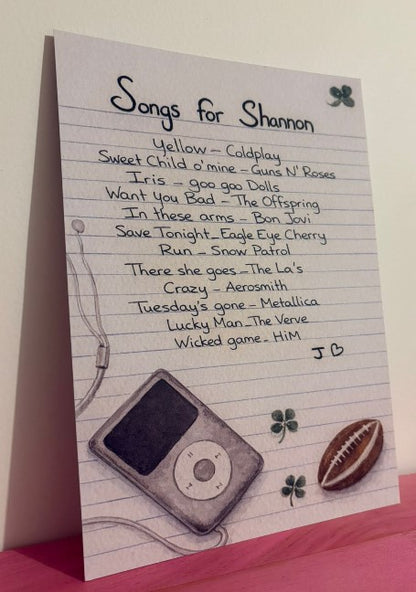 Songs for Shannon
Yellow - Coldplay
Sweet Child o'mine - Guns N' Roses
Iris - goo goo Dolls
Want you Bad - The Offspring
In these arms - Bon Jovi
Save Tonight - Eagle Eye Cherry
Run - Snow Patrol
There she goes - The La's
Crazy - Aerosmith
Tuesday's gone - Metallica
Lucky Man - The Verve
Wicked game - HiM
J ♡